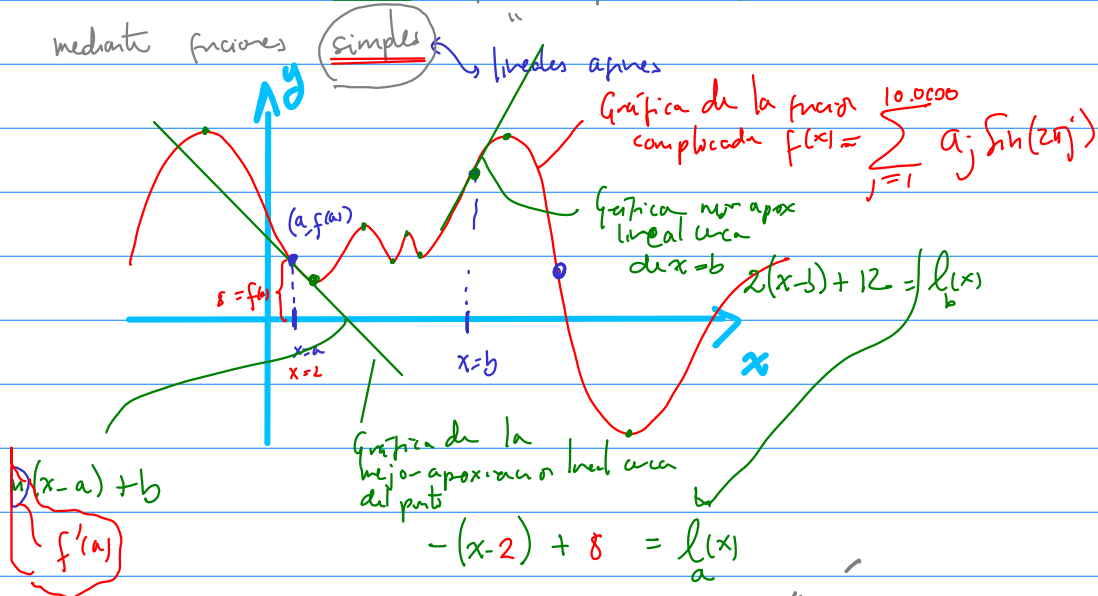 mediante funciones simples
lineales afines
y
Gráfica de la función
complicada f(x) = \sum_{j=1}^{10.0000} a_j Sin(2πj)
(a, f(a))
Gráfica mejor aprox
lineal cerca
de x=b
2(x-5)+12 = l_b(x)
8 = f(a)
x=a
x=2
x=b
x
Gráfica de la
mejor aproximación lineal cerca
del punto
m(x-a)+b
f'(a)
-(x-2) + 8 = l_a(x)